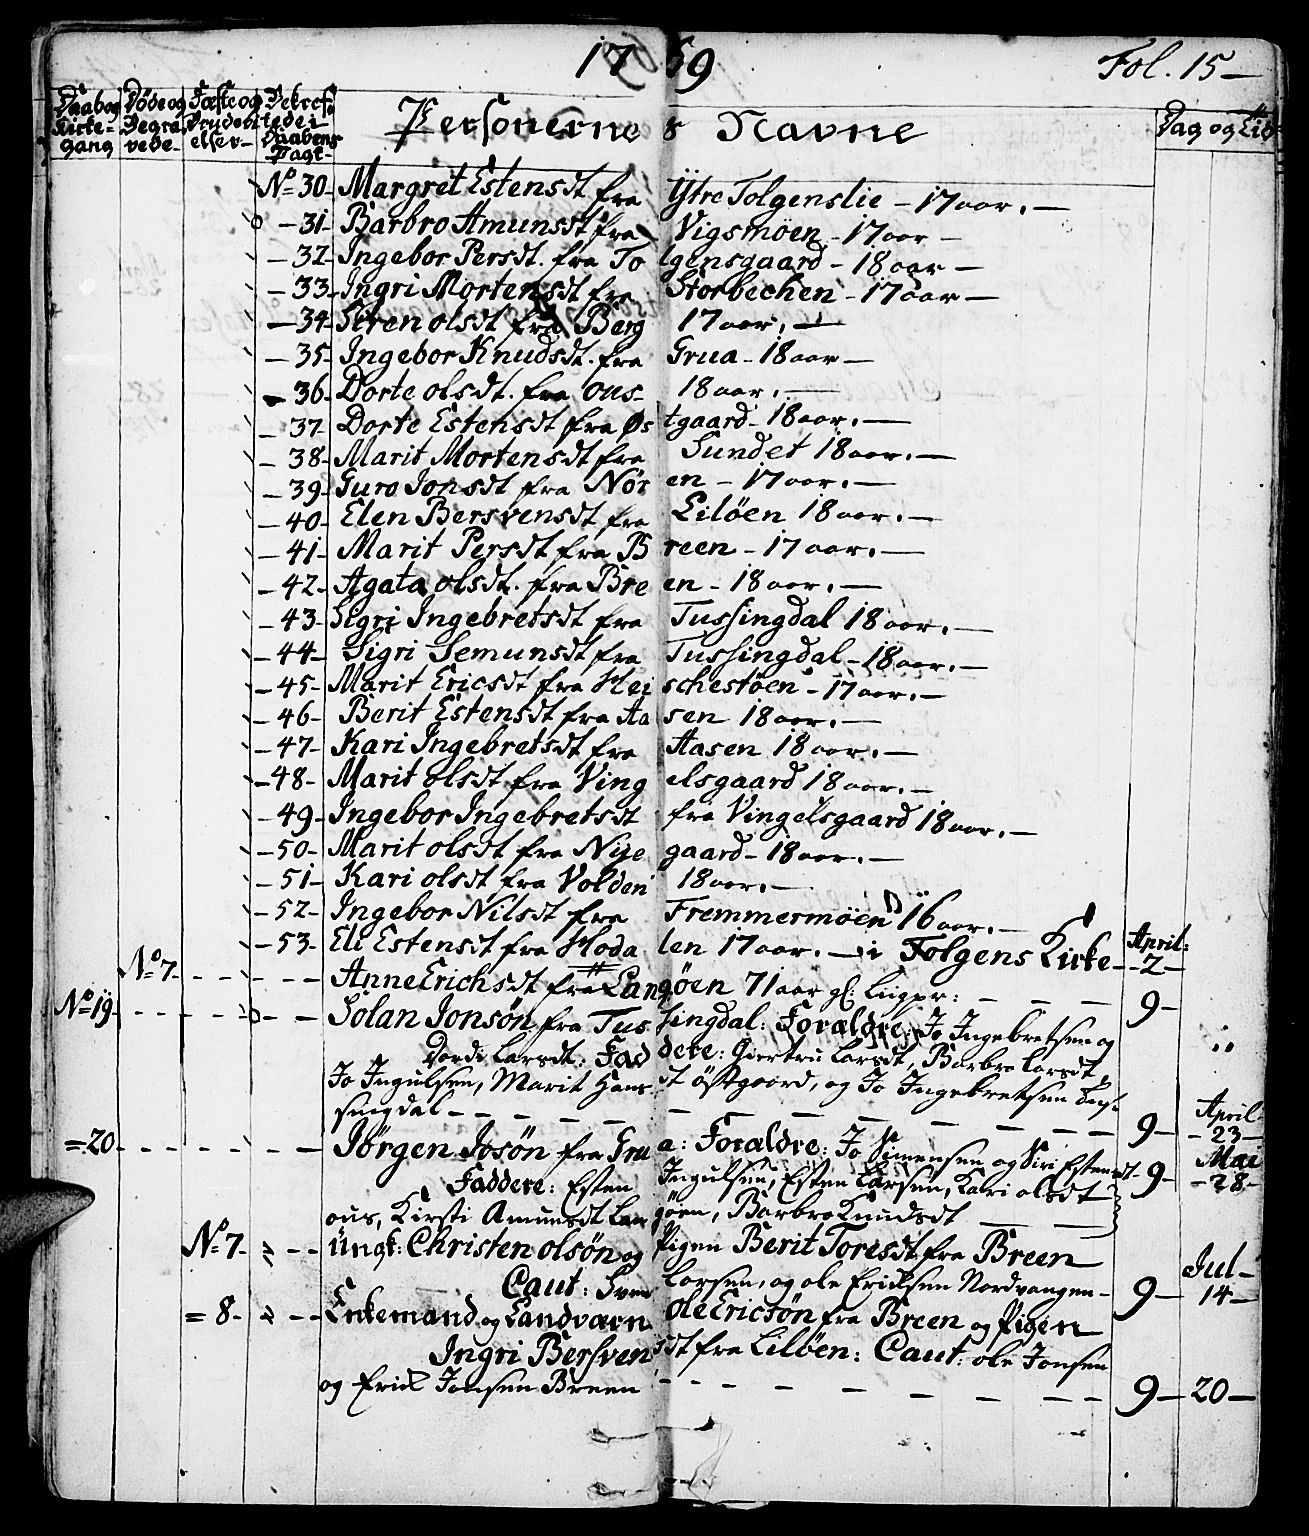 1769 Fol. 15-
Daab og Kirke=gang Døde og Begravede- Fæste og Brudevielser- Bekræftede i Daabens Pagt- Personernes Navne Dag og Tid
No 30- Margret Estensdt fra Ÿtre Tolgenslie - 17 aar. -
- 31- Barbro Amunsdt fra Vigsmöen - 17 aar -
- 32- Ingebor Persdt. fra Tolgensgaard - 18 aar -
- 33- Ingri Mortensdt fra Storbechen - 17 aar -
- 34- Siren olsdt fra Berg 17 aar. -
- 35- Ingebor Knudsdt. fra Grua - 18 aar -
- 36- Dorte olsdt. fra ous- 18 aar. -
- 37 Dorte Estensdt fra Østgaard - 18 aar. -
- 38- Marit Mortensdt fra Sundet 18 aar. -
- 39- Guro Jonsdt fra Nören - 17 aar. -
- 40- Elen Bersvensdt fra Lilöen 18 aar. -
- 41- Marit Persdt fra Breen - 17 aar. -
- 42- Agata olsdt. fra Breen - 18 aar. -
- 43- Sigri Ingebretsdt fra Tussingdal 18 aar. -
- 44- Sigri Semunsdt fra Tussingdal - 18 aar. -
- 45- Marit Ericsdt fra Heischestöen - 17 aar. -
- 46- Berit Estensdt fra Aasen 18 aar. -
- 47- Kari Ingebretsdt fra Aasen 18 aar. -
- 48- Marit olsdt fra Vingelsgaard 18 aar. -
- 49- Ingebor Ingebretsdt fra Vingelsgaard 18 aar. -
- 50- Marit olsdt fra Nyegaard - 18 aar. -
- 51- Kari olsdt fra Volden 18 aar. -
- 52- Ingebor Nilsdt fra Fremmermöen 16 aar. -
- 53- Eli Estensdt fra Hodalen 17 aar. - i Tolgens Kirke - April: - 2 -
No 7 - - - - - - Anne Erichsdt fra Langöen 71 aar - - - 9-
No 19- - - - - - Solan Jonsön fra Tussingdal: Foraldre: Jo Ingebretsen og
Dordi Larsdt: Faddere: Giertru Larsdt, Barbro Larsdt
Jo Ingulsen, Marit Hansdt östgaard, og Jo Ingebretsen
singdal - - - - - - - - - - - 9- April - 23 -
= 20- - - - - - - Jörgen Josön fra Grua: Foraldre: Jo Simensen og Siri Estensdt - 9- Mai - 28 -
Faddere: Esten Ingulsen, Esten Larsen, Kari olsdt
ous, Kirsti Amunsdt Langöen, Barbro Knudsdt - -
No 7 - - - ungk: Christen olsön og Pigen Berit Toresdt fra Breen
Caut: Sven Larsen, og ole Ericksen Nordvangen - 9- Jul - 14 -
= 8- - - - Enkemand og Landværn Ole Ericsön fra Breen og Pigen
Ingri Bersvensdt fra Lilöen: Caut: ole Jonsen
og Erick Jonsen Breen - - - - - - - - 9- 20 -